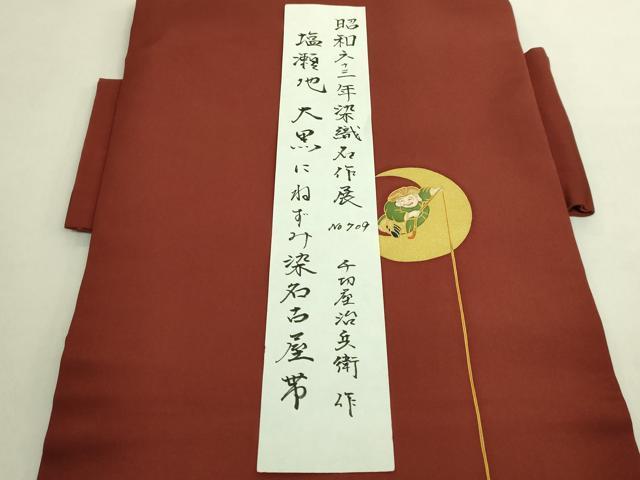 昭和六十三年染織名作展 No709 千切屋治兵衛 作
塩瀬地 大黒にねずみ染名古屋帯